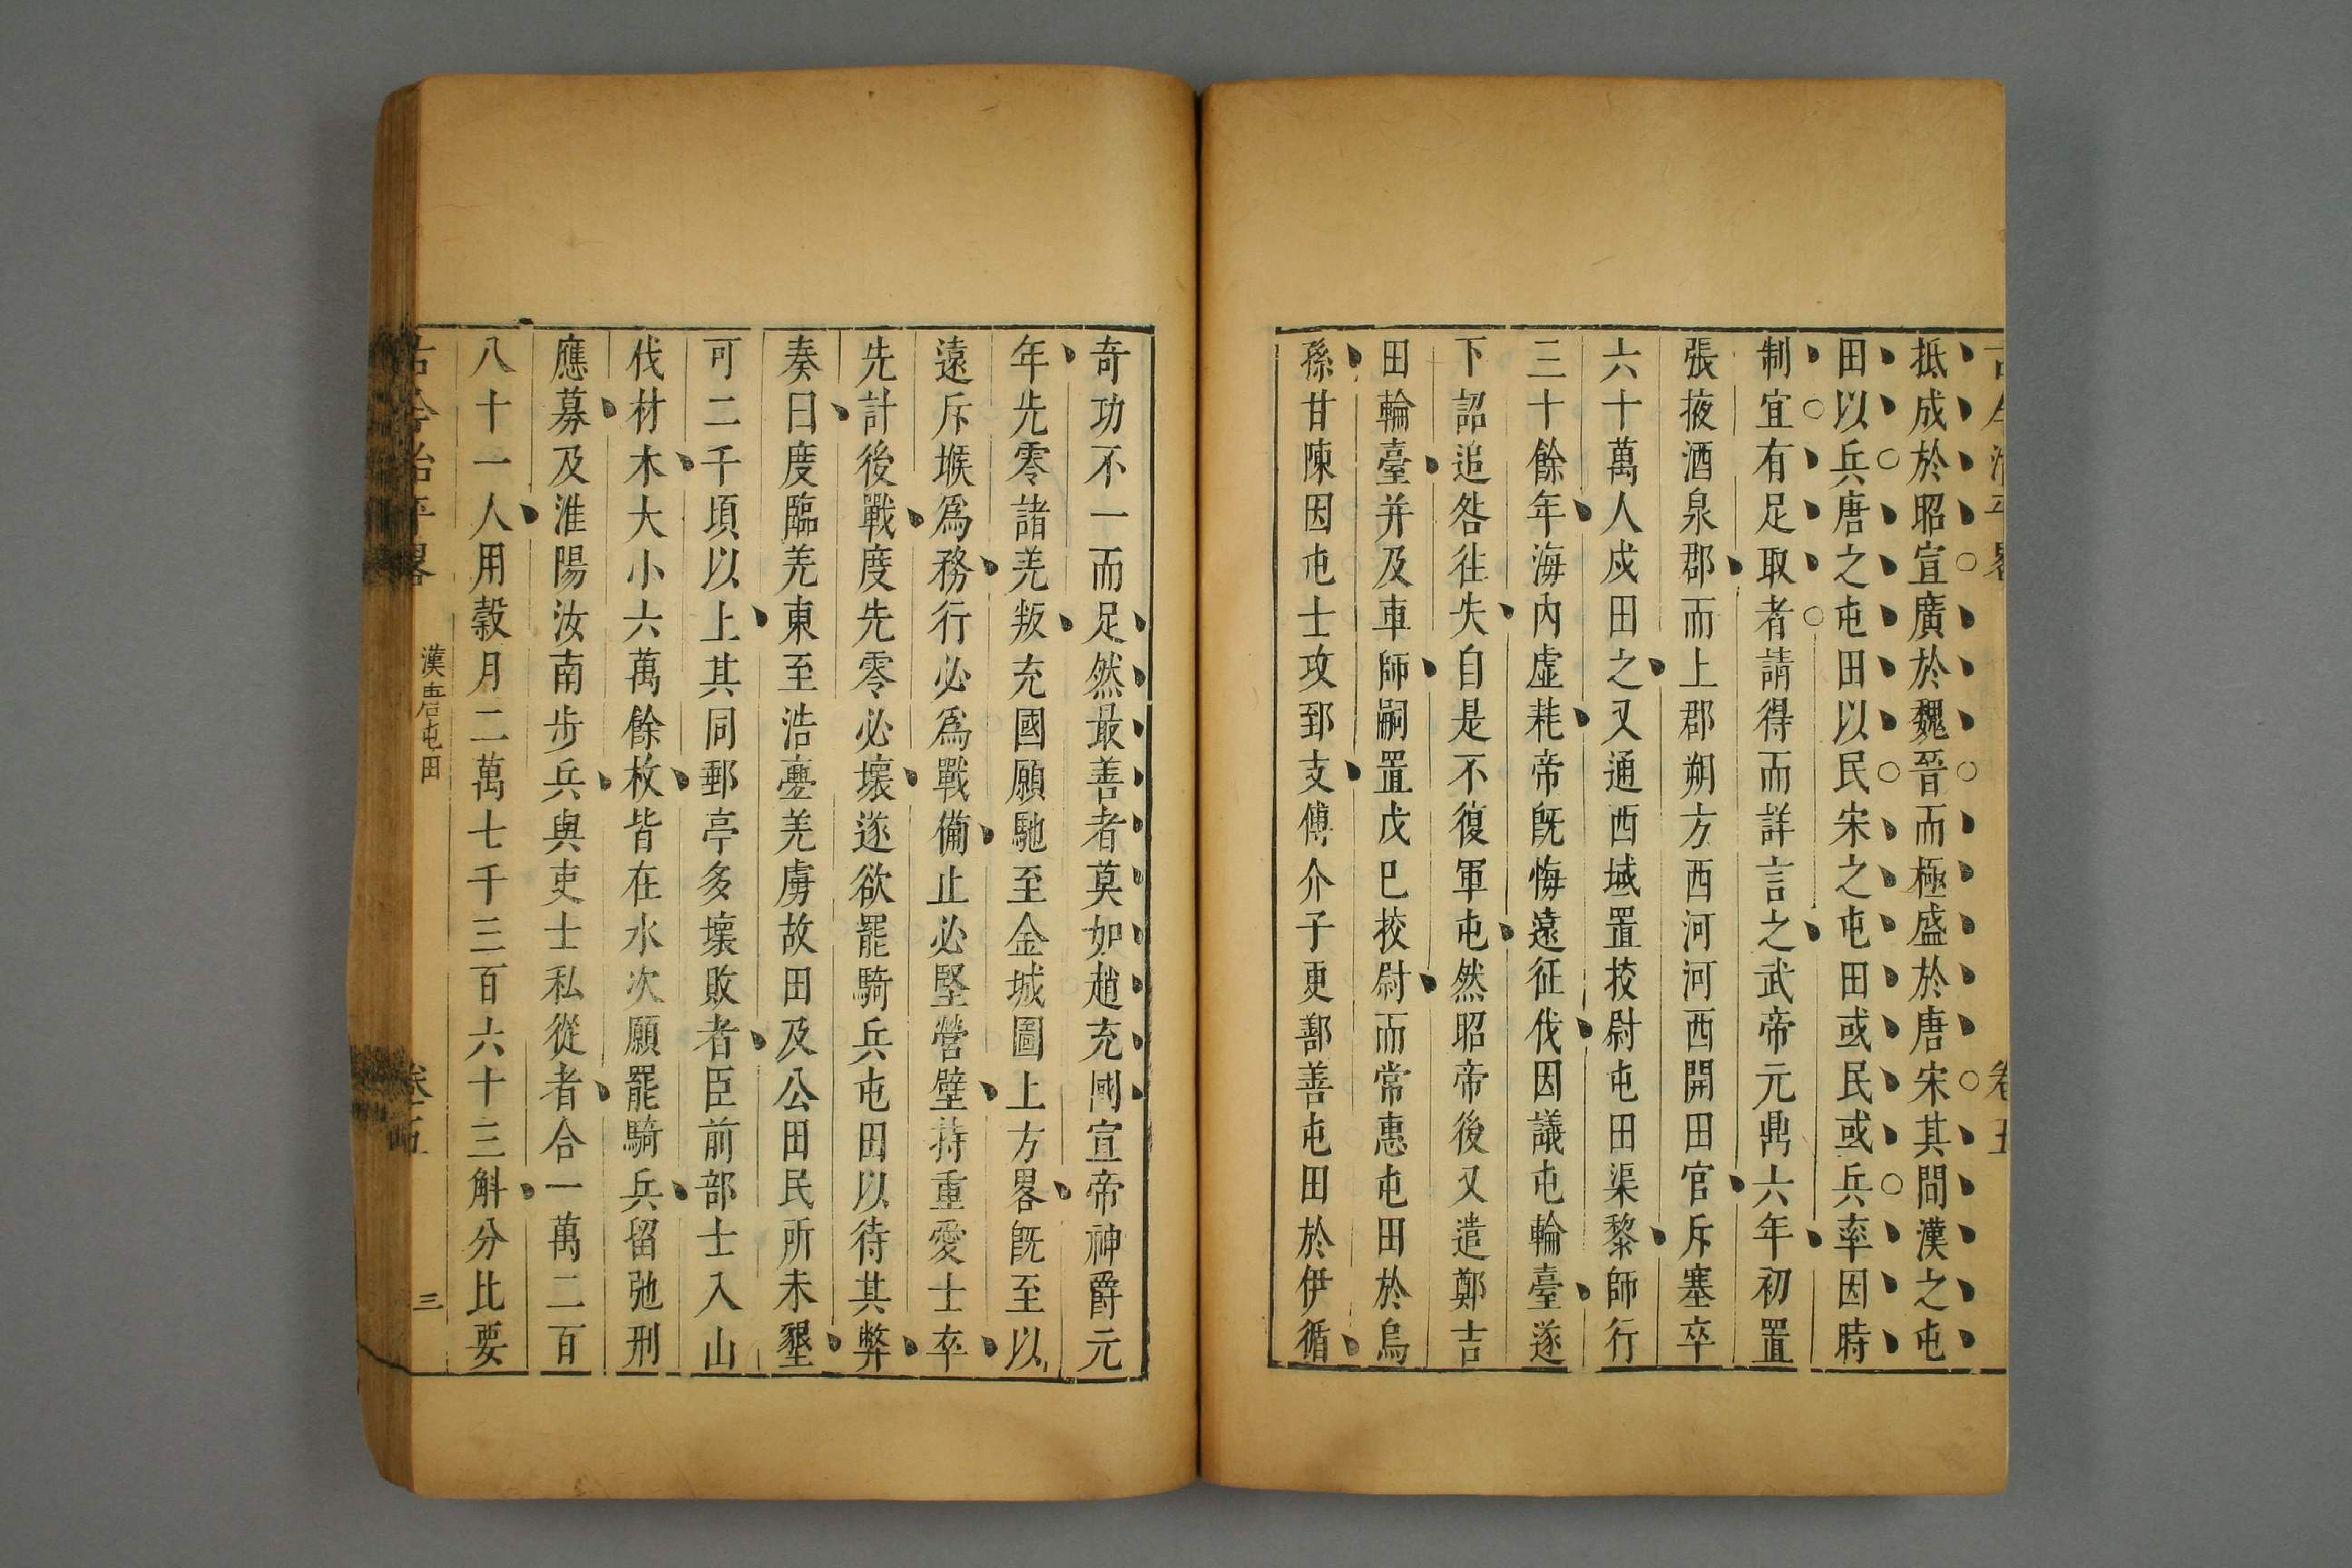 抵成於昭宣廣於魏晉而極盛於唐宋其間漢之屯
田以兵唐之屯田以民宋之屯田或民或兵率因時
制宜有足取者請得而詳言之武帝元鼎六年初置
張掖酒泉郡而上郡朔方西河河西開田官斥塞卒
六十萬人戍田之又通西域置校尉屯田渠黎師行
三十餘年海內虛耗帝既悔遠征伐因議屯輪臺遂
下詔追咎往失自是不復軍屯然昭帝後又遣鄭吉
田輪臺并及車師嗣置戊巳校尉而常惠屯田於烏
孫甘陳因屯士攻郅支傅介子更鄯善屯田於伊循
奇功不一而足然最善者莫如趙充國宣帝神爵元
年先零諸羌叛充國願馳至金城圖上方畧既至以
遠斥堠爲務行必爲戰備止必堅營壁持重愛士卒
先計後戰度先零必壞遂欲罷騎兵屯田以待其弊
奏曰度臨羌東至浩亹羌虜故田及公田民所未墾
可二千頃以上其同郵亭多壞敗者臣前部士入山
伐材木大小六萬餘枚皆在水次願罷騎兵留弛刑
應募及淮陽汝南步兵與吏士私從者合一萬二百
八十一人用穀月二萬七千三百六十三斛分比要
古今治平畧 漢唐屯田 卷五 三